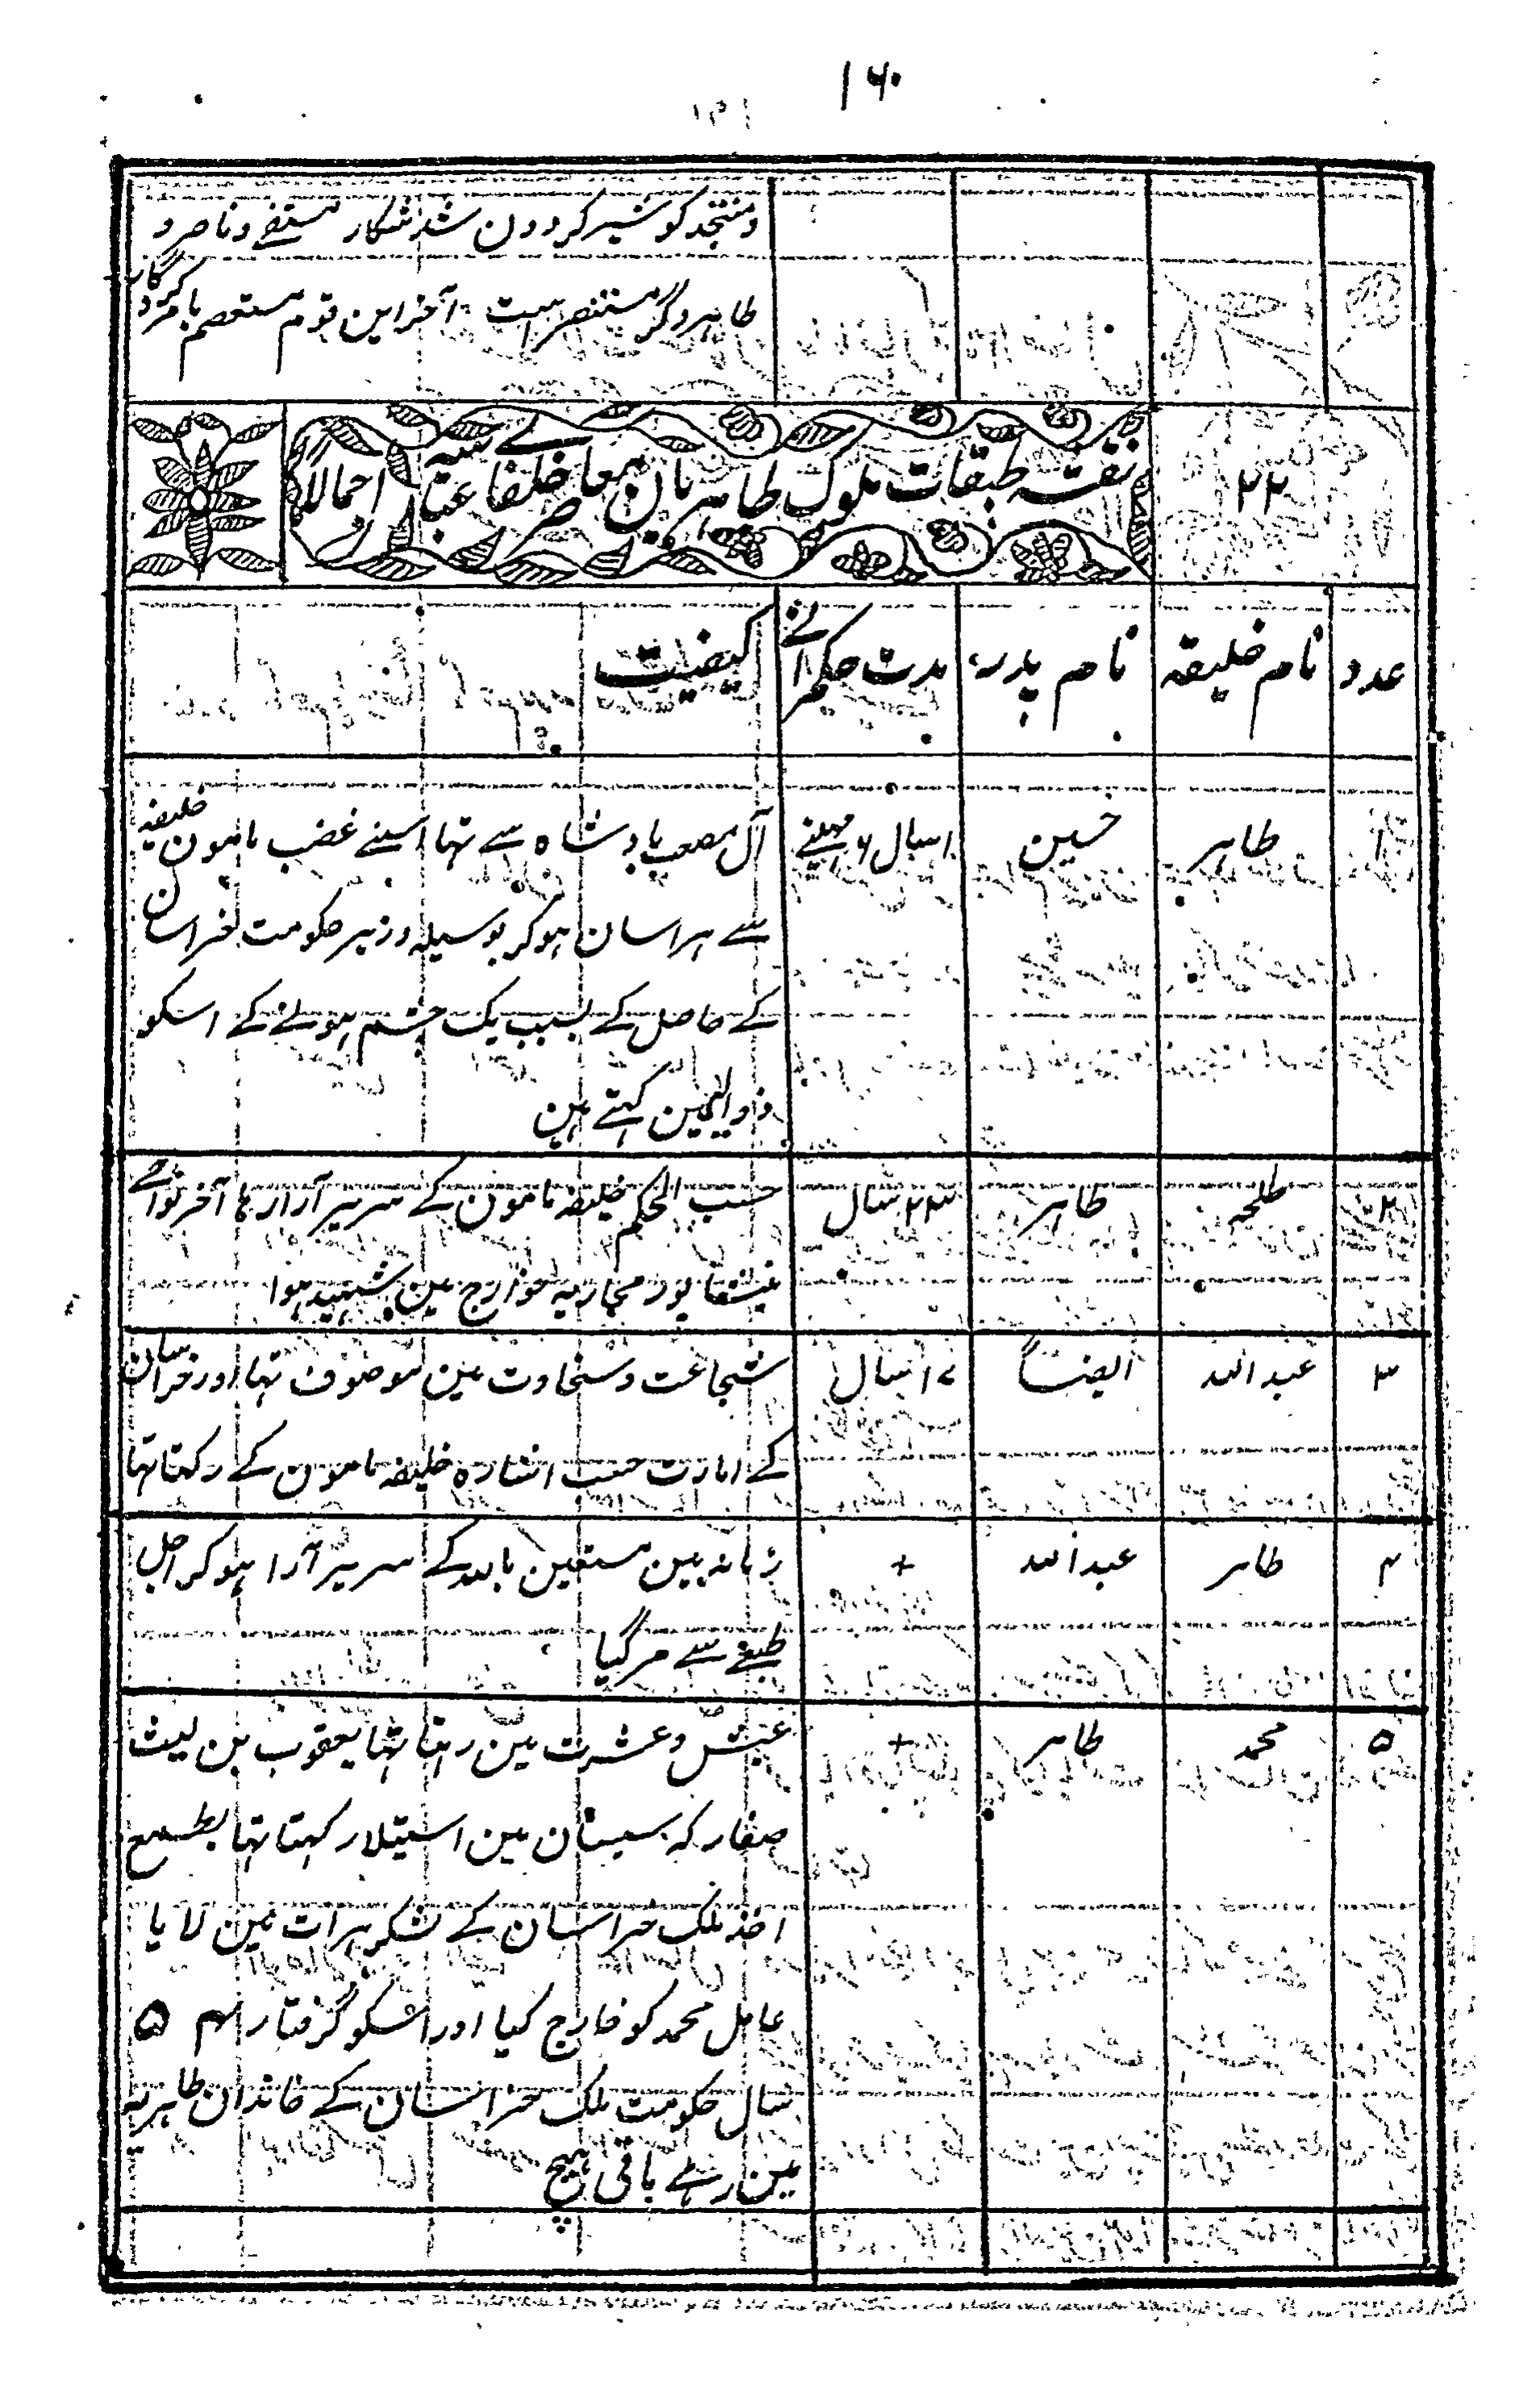 ۱۶۰
ومستنجد کو شیر کردون شد شکار مستضے وناصر و
طاہر وگر مستنصر است آخر این قوم مستعصم با کردگار
۲۲ طبقات ملوک طاہریان معاصر خلفا عباسیہ اجمالاً
عدد نام خلیفہ نام پدر مدت حکمرانے کیفیت
۱ طاہر حسین اسال ۶ مہینے آل مصعب بادشاہ سے تہا اسنے غضب مامون خلیفہ
سے ہراسان ہوکر بوسیلہ وزیر حکومت خراسان
کے حاصل کے بسبب یک چشم ہونے کے اسکو
ذوالیمین کہتے ہین
۲ طلحہ طاہر سال حسب الحکم خلیفہ مامون کے سریر آرا رہا آخر نواحے
نیشاپور محاربہ خوارج مین شہید ہوا
۳ عبداللہ ایضاً ۱۷سال شجاعت وسخاوت مین موصوف تہا اور خراسان
کے امارت حسب اشارہ خلیفہ مامون کے رکہتا تہا
۴ طاہر عبداللہ + زمانہ مین مستعین باللہ کے سریر آرا ہوکر اجل
طبعے سے مرگیا
۵ محمد طاہر + عیش وعشرت مین رہتا تہا یعقوب بن لیث
صفار کہ سیستان مین استیلا رکہتا تہا بطمع
اخذ ملک خراسان کے لشکر ہرات مین لایا
عامل محمد کو خارج کیا اور اسکو گرفتار ۵
سال حکومت ملک خراسان کے خاندان طاہریہ
مین رہے باقی ہیچ